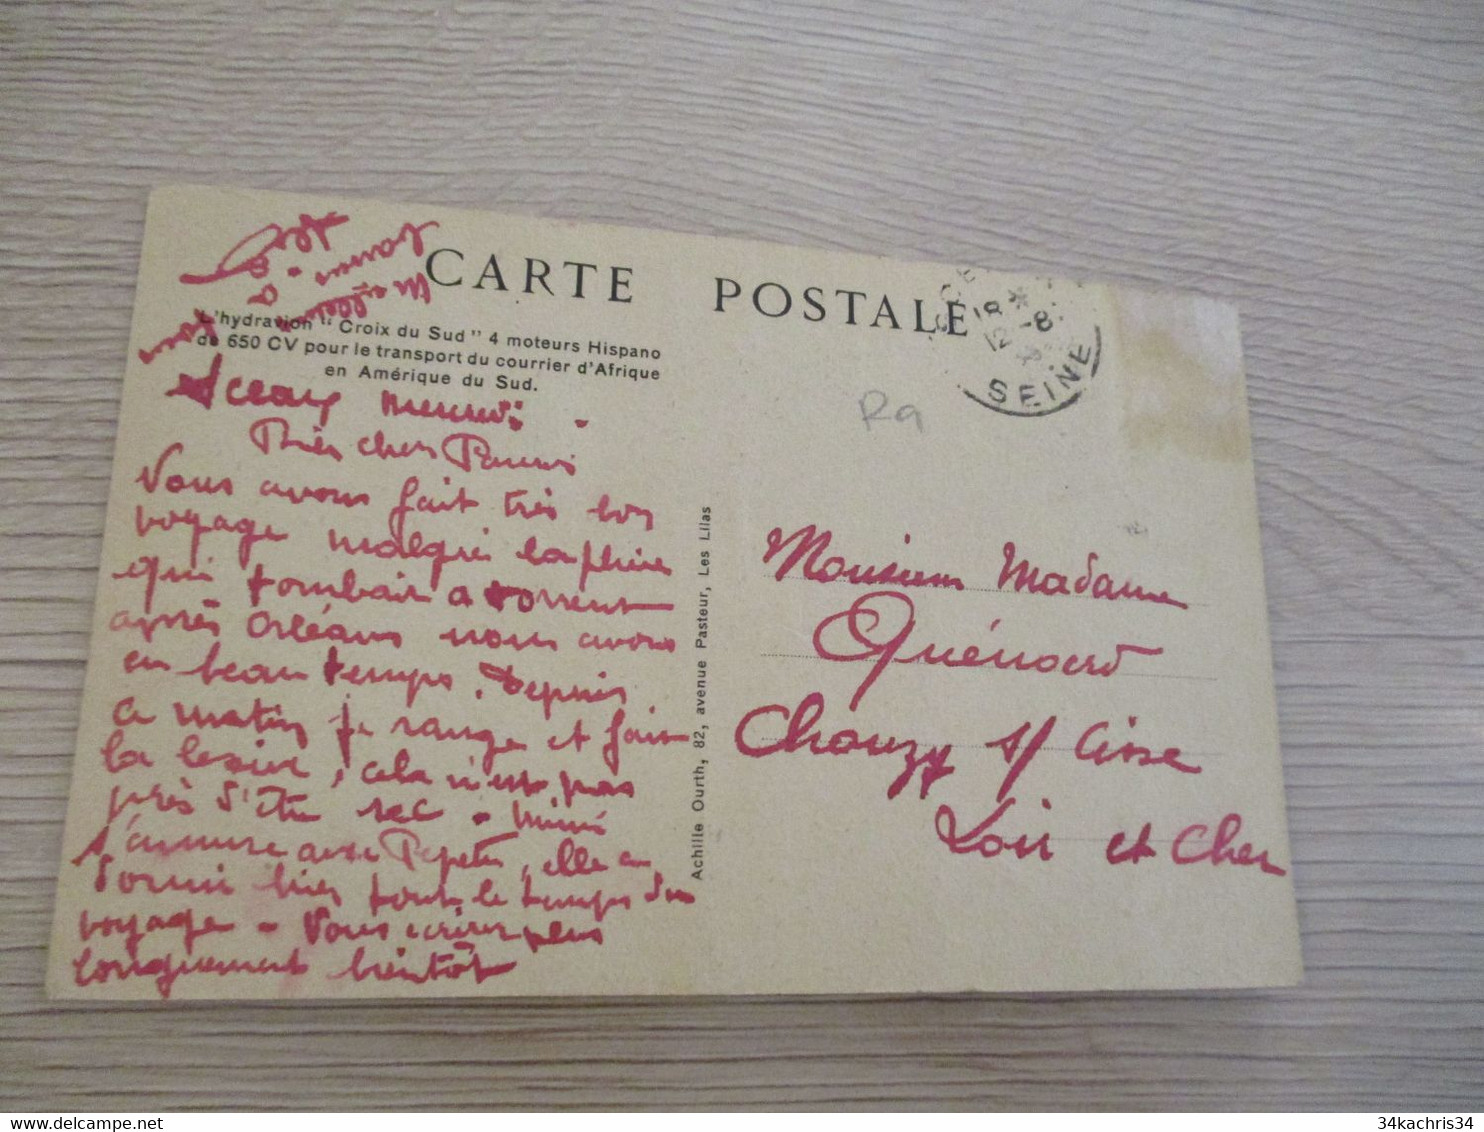 CARTE POSTALE
L'hydravion "Croix du Sud" 4 moteurs Hispano
de 650 CV pour le transport du courrier d'Afrique
en Amérique du Sud.
Sceaux
Très chers
Vous avons fait très bon
voyage malgré la pluie
qui tombait a torrent
après Orléans nous avons
eu beau temps. Depuis
ce matin je range et fais
la lessive, cela n'est pas
près d'être sec - Mimi
s'amuse avec elle a
dormi hier tout le temps du
voyage - Vous écrirai plus
longuement bientôt
Achille Ourth, 82, avenue Pasteur, Les Lilas
18 *
12 -8
SEINE
R9
Monsieur Madame
Quénard
Chouzy s/ Cisse
Loir et Cher
34kachris34